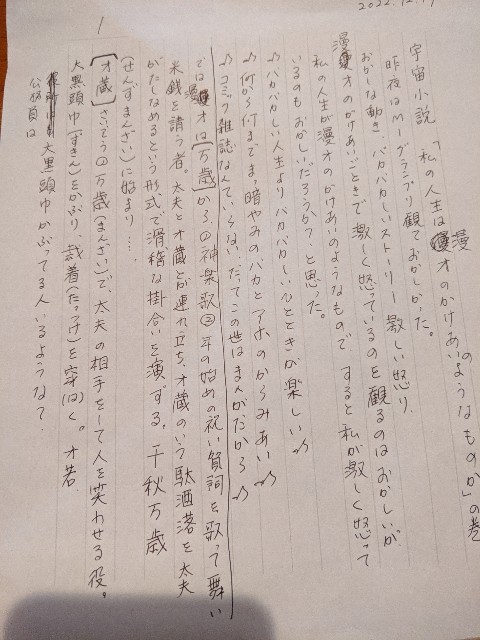 2022.12.19
1
宇宙小説 「私の人生は漫才のかけあいのようなものか」の巻
昨夜はMーグランプリ観ておかしかった。
おかしな動き、バカバカしいストーリー 激しい怒り、
漫才のかけあいごときで激しく怒っているのを観るのはおかしいが、
私の人生が漫才のかけあいのようなもので すると私が激しく怒って
いるのもおかしいだろうか?と思った。
♪バカバカしい人生より バカバカしいひとときが楽しい♪
♪何から何までまっ暗やみのバカとアホのからみあい♪
♪コミック雑誌なんていらない、だってこの世はまんがだから♪
では漫才は[万歳]から、①神楽歌②年の始めの祝い賀詞を歌って舞い
米銭を請う者。太夫と才蔵とが連れ立ち、才蔵のいう駄洒落を太夫
がたしなめるという形式で滑稽な掛合いを演ずる。千秋万歳
(せんずまんざい)に始まり……
[才蔵]さいぞう①万歳(まんざい)で太夫の相手をして人を笑わせる役。
大黒頭巾(ずきん)をかぶり、裁着(たっつけ)を穿(は)く。才若.
大黒頭巾かぶってる人いるような?
公務員は